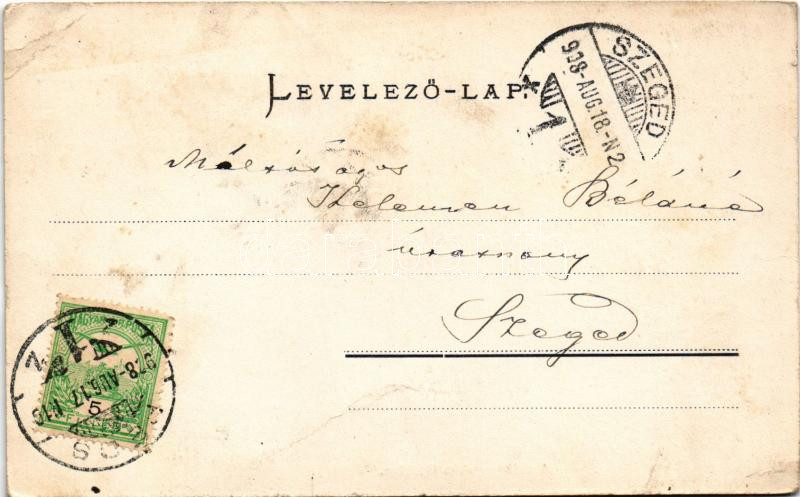 LEVELEZŐ-LAP.
SZEGED
908-AUG.18.-N2
Méltóságos
Kelemen Béláné
úrasszony
Szeged
MAGYAR
908-AUG.17
5